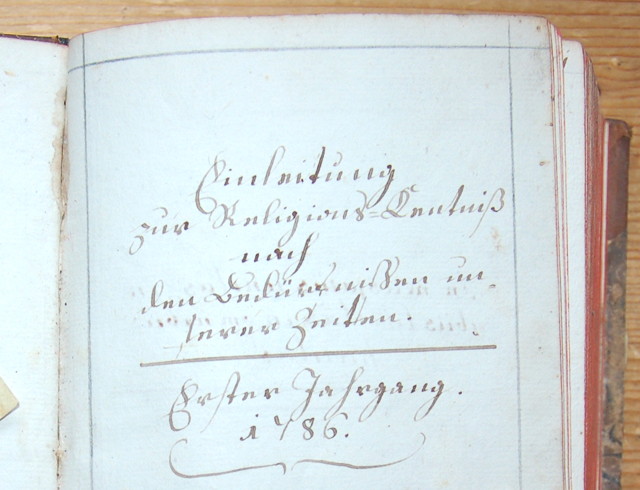 Einleitung
zur Religions=Kentniß
nach
den Bedürfnissen un-
serer Zeiten.
Erster Jahrgang.
1786.